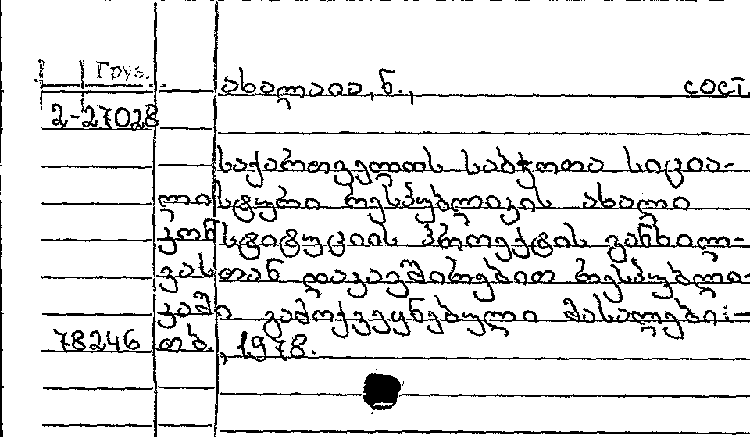 Груз.
ახალაია, ნ., сост.
2-27028
საქართველოს საბჭოთა სოცია-
ლისტური რესპუბლიკის ახალი
კონსტიტუციის პროექტის განხილ-
ვასთან დაკავშირებით რესპუბლი-
კაში გამოქვეყნებული მასალები:-
78246 თბ., 1978.